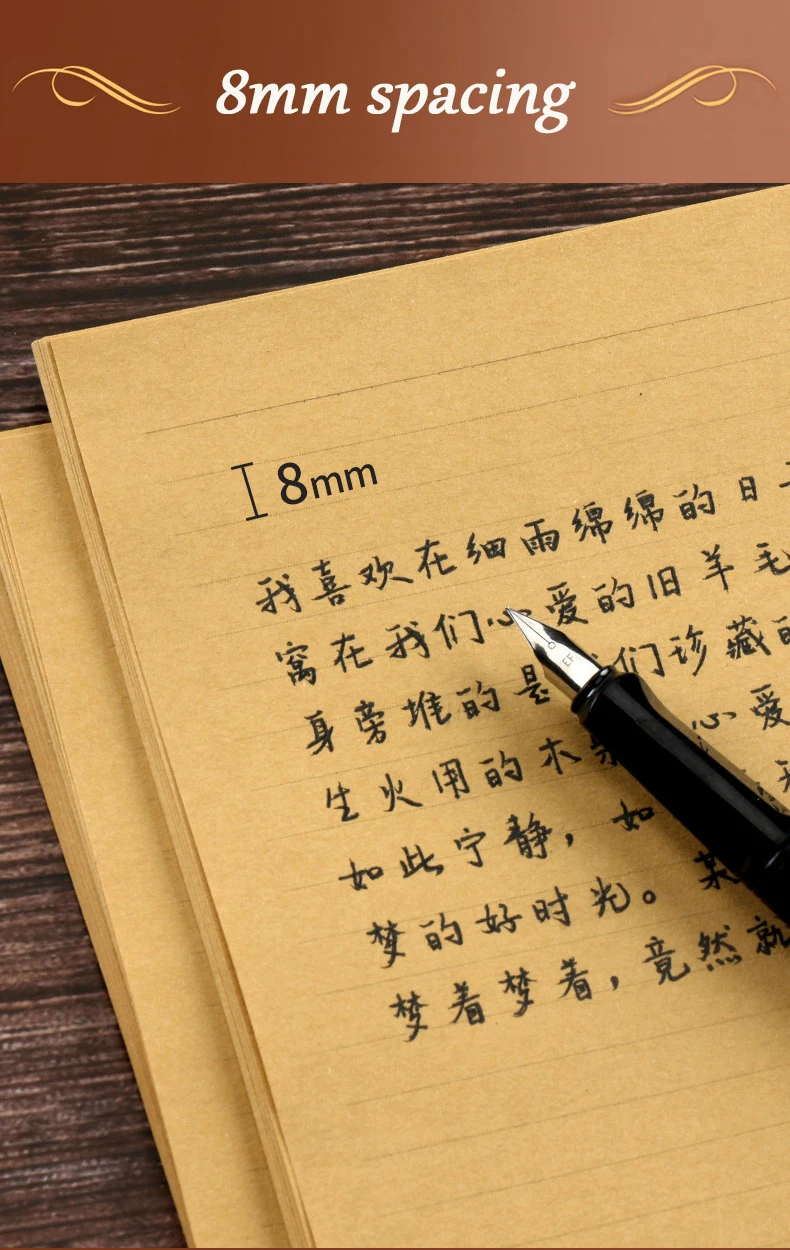 8mm spacing
8mm
我喜欢在细雨绵绵的日
窝在我们心爱的旧羊毛
身旁堆的是 们珍藏的
生火用的木 心爱
如此宁静，如
梦的好时光。某
梦着梦着，竟然就
EF